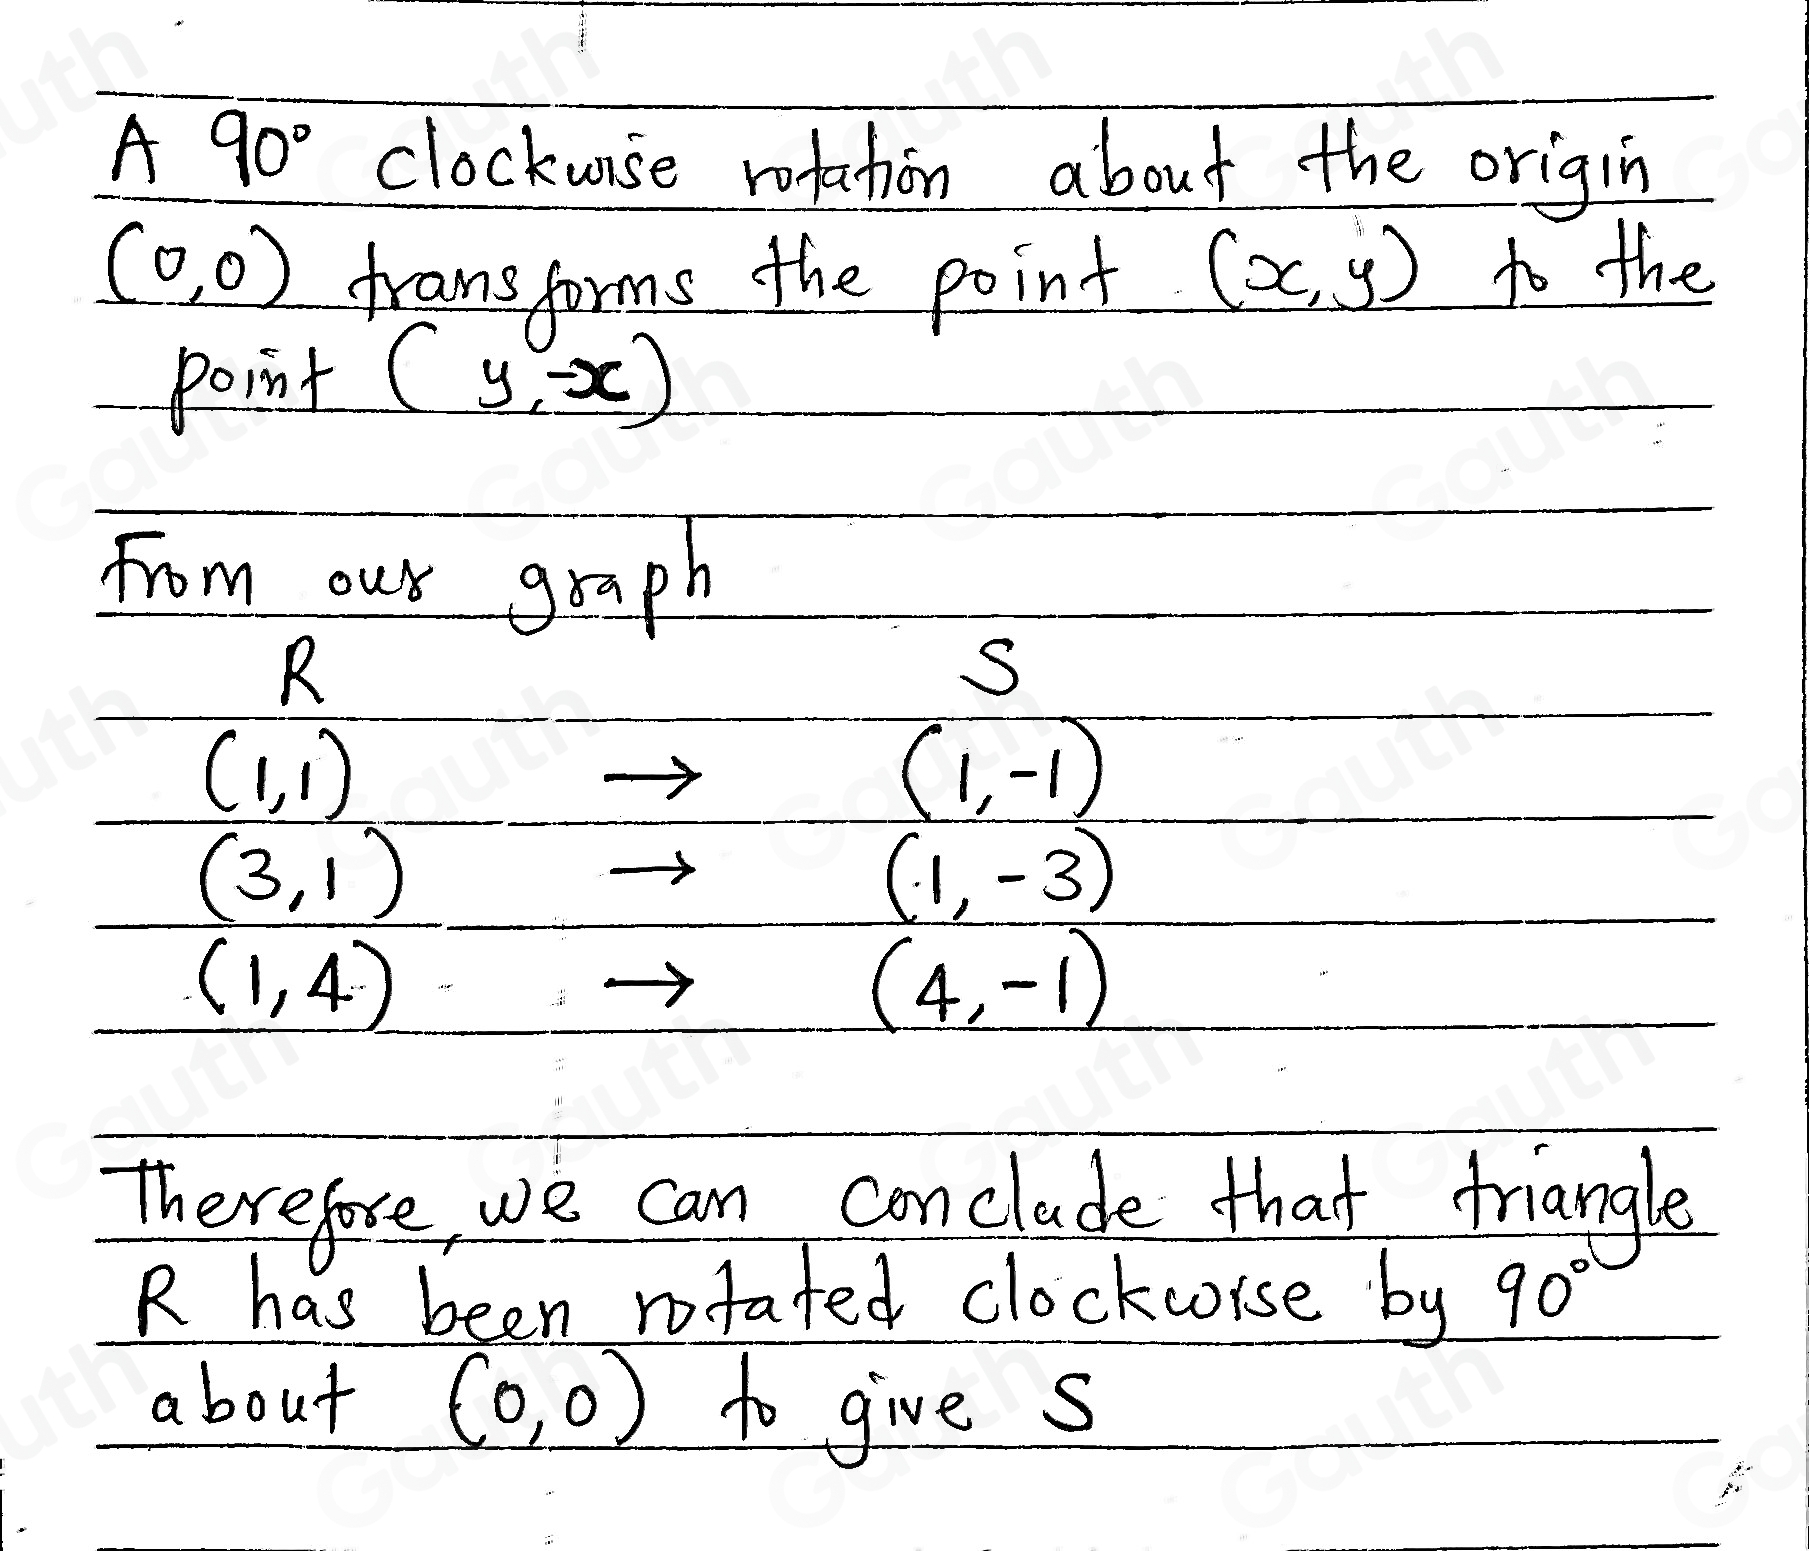 A 90° clockwise rotation about the origin
(0,0) transforms the point (x,y) to the
point (y,-x)
From our graph
R S
(1,1) → (1,-1)
(3,1) → (1,-3)
(1,4) → (4,-1)
Therefore, we can conclude that triangle
R has been rotated clockwise by 90°
about (0,0) to give S